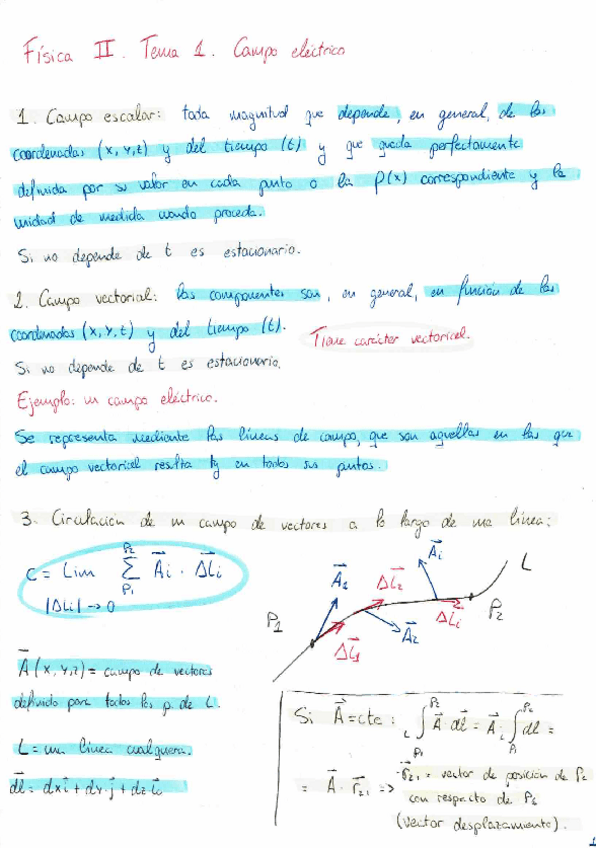 Física II. Tema 1. Campo eléctrico
1. Campo escalar: toda magnitud que depende, en general, de las
coordenadas (x, y, t) y del tiempo (t) y que queda perfectamente
definida por su valor en cada punto o la P(x) correspondiente y la
unidad de medida cuando proceda.
Si no depende de t es estacionario.
2. Campo vectorial: las componentes son, en general, en función de las
coordenadas (x, y, t) y del tiempo (t).
Tiene carácter vectorial.
Si no depende de t es estacionario.
Ejemplo: un campo eléctrico.
Se representa mediante las líneas de campo, que son aquellas en las que
el campo vectorial resulta tg en todos sus puntos.
3. Circulación de un campo de vectores a lo largo de una línea:
C = Lim Σ Ai · ΔLi
P2
P1
|ΔLi| → 0
P1
A1
ΔL1
ΔL2
A2
Ai
ΔLi
P2
L
A (x, y, z) = campo de vectores
definido para todos los p. de L.
L = una línea cualquiera.
dl = dxi + dy·j + dzk
Si A = cte: L ∫ A dl = A ∫ dl =
= A · r21 => r21 = vector de posición de P2
con respecto de P1
(vector desplazamiento).
1